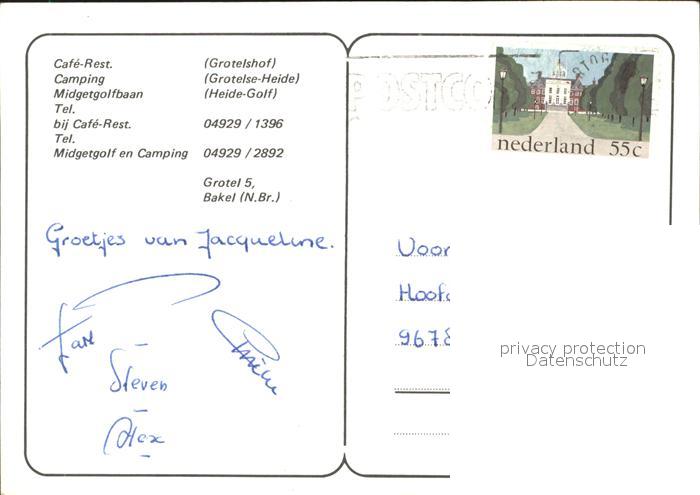 Café-Rest. (Grotelshof)
Camping (Grotelse-Heide)
Midgetgolfbaan (Heide-Golf)
Tel.
bij Café-Rest. 04929 / 1396
Tel.
Midgetgolf en Camping 04929 / 2892
Grotel 5,
Bakel (N.Br.)
Groetjes van Jacqueline.
Steven
Alex
POSTCO
nederland 55 c
Voor
Hoofd
9678
privacy protection
Datenschutz